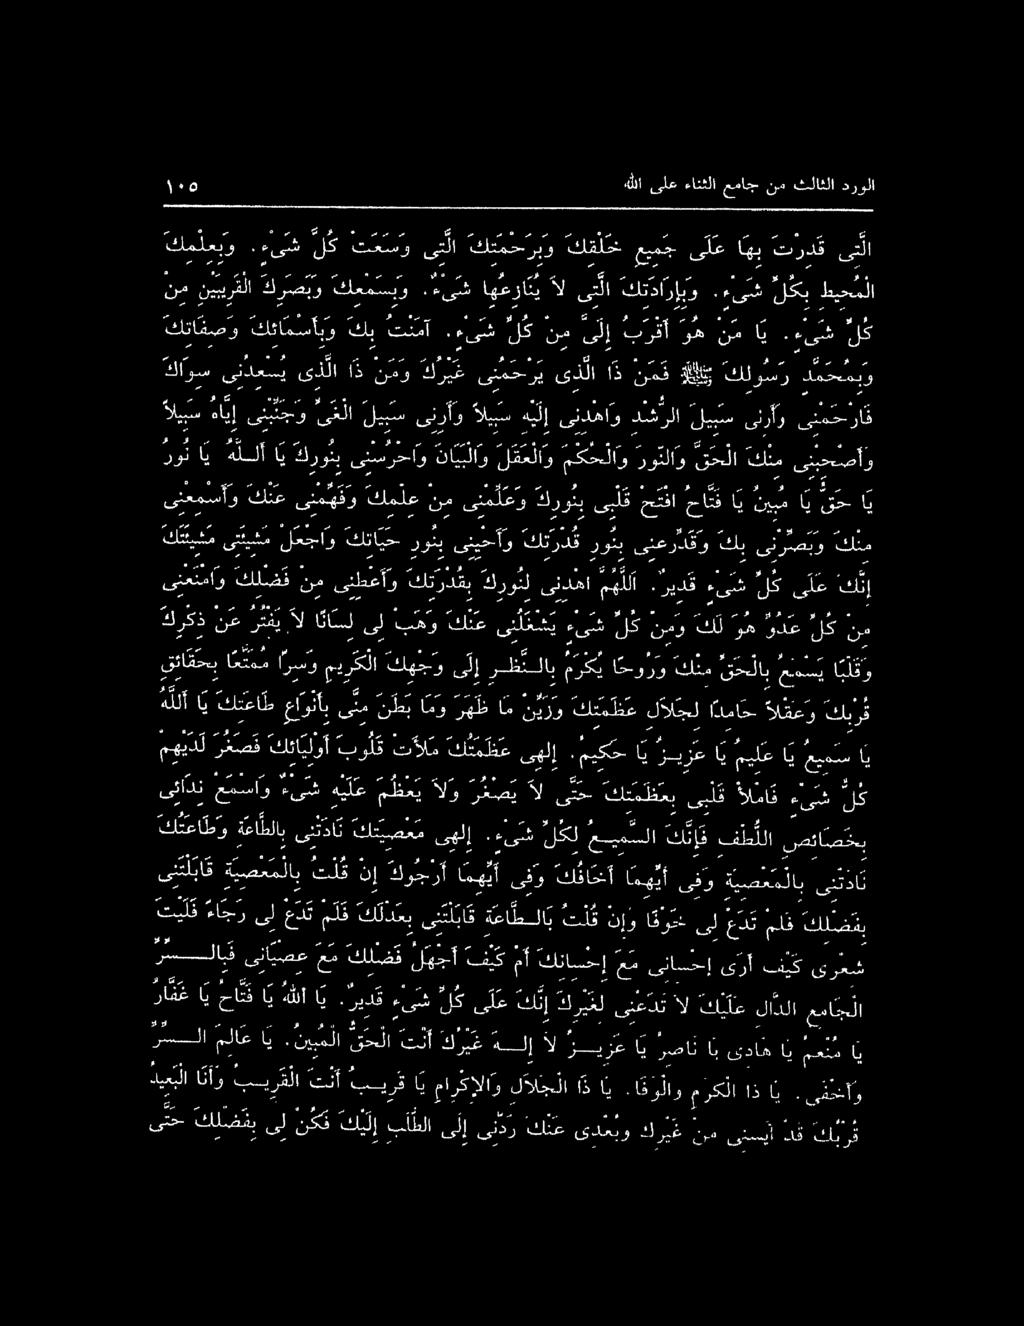 الورد الثالث من جامع الثناء على الله ١٠٥
الَّتِى قَدَرْتَ بِهَا عَلَى جَمِيعِ خَلْقِكَ وَبِرَحْمَتِكَ الَّتِى وَسِعَتْ كُلَّ شَىْءٍ. وَبِعِلْمِكَ
الْمُحِيطِ بِكُلِّ شَىْءٍ. وَبِإِرَادَتِكَ الَّتِى لاَ يُنَازِعُهَا شَىْءٌ. وَبِسَمْعِكَ وَبَصَرِكَ الْقَرِيبَيْنِ مِنْ
كُلِّ شَىْءٍ. يَا مَنْ هُوَ أَقْرَبُ إِلَىَّ مِنْ كُلِّ شَىْءٍ. آمَنْتُ بِكَ وَبِأَسْمَائِكَ وَصِفَاتِكَ
وَبِمُحَمَّدٍ رَسُولِكَ ﷺ فَمَنْ ذَا الَّذِى يَرْحَمُنِى غَيْرُكَ وَمَنْ ذَا الَّذِى يُسْعِدُنِى سِوَاكَ
فَارْحَمْنِى وَأَرِنِى سَبِيلَ الرُّشْدِ وَاهْدِنِى إِلَيْهِ سَبِيلاً وَأَرِنِى سَبِيلَ الْغَىِّ وَجَنِّبْنِى إِيَّاهُ سَبِيلاً
وَأَصْحِبْنِى مِنْكَ الْحَقَّ وَالنُّورَ وَالْحُكْمَ وَالْعَقْلَ وَالْبَيَانَ وَاحْرُسْنِى بِنُورِكَ يَا أَللَّهُ يَا نُورُ
يَا حَقُّ يَا مُبِينُ يَا فَتَّاحُ افْتَحْ قَلْبِى بِنُورِكَ وَعَلِّمْنِى مِنْ عِلْمِكَ وَفَهِّمْنِى عَنْكَ وَأَسْمِعْنِى
مِنْكَ وَبَصِّرْنِى بِكَ وَقَدِّرْعَنِى بِنُورِ قُدْرَتِكَ وَأَحْيِنِى بِنُورِ حَيَاتِكَ وَاجْعَلْ مَشِيئَتِى مَشِيئَتَكَ
إِنَّكَ عَلَى كُلِّ شَىْءٍ قَدِيرٌ. اَللَّهُمَّ اهْدِنِى لِنُورِكَ بِقُدْرَتِكَ وَأَعْطِنِى مِنْ فَضْلِكَ وَامْنَعْنِى
مِنْ كُلِّ عَدُوٍّ هُوَ لَكَ وَمِنْ كُلِّ شَىْءٍ يَشْغَلُنِى عَنْكَ وَهَبْ لِى لِسَانًا لاَ يَفْتُرُ عَنْ ذِكْرِكَ
وَقَلْبًا يَسْمَعُ بِالْحَقِّ مِنْكَ وَرُوحًا يُكْرَمُ بِالنَّظَرِ إِلَى وَجْهِكَ الْكَرِيمِ وَسِرًّا مُمَتَّعًا بِحَقَائِقِ
قُرْبِكَ وَعَقْلاً حَامِدًا لِجَلاَلِ عَظَمَتِكَ وَزَيِّنْ مَا ظَهَرَ وَمَا بَطَنَ مِنِّى بِأَنْوَاعِ طَاعَتِكَ يَا أَللَّهُ
يَا سَمِيعُ يَا عَلِيمُ يَا عَزِيزُ يَا حَكِيمُ. إِلٰهِى عَظَمَتُكَ مَلأَتْ قُلُوبَ أَوْلِيَائِكَ فَصَغُرَ لَدَيْهِمْ
كُلُّ شَىْءٍ فَامْلأْ قَلْبِى بِعَظَمَتِكَ حَتَّى لاَ يَصْغُرَ وَلاَ يَعْظُمَ عَلَيْهِ شَىْءٌ وَاسْمَعْ نِدَائِى
بِخَصَائِصِ اللُّطْفِ فَإِنَّكَ السَّمِيعُ لِكُلِّ شَىْءٍ. إِلٰهِى مَعْصِيَتُكَ نَادَتْنِى بِالطَّاعَةِ وَطَاعَتُكَ
نَادَتْنِى بِالْمَعْصِيَةِ وَفِى أَيِّهِمَا أَخَافُكَ وَفِى أَيِّهِمَا أَرْجُوكَ إِنْ قُلْتُ بِالْمَعْصِيَةِ قَابَلْتَنِى
بِفَضْلِكَ فَلَمْ تَدَعْ لِى خَوْفًا وَإِنْ قُلْتُ بِالطَّاعَةِ قَابَلْتَنِى بِعَدْلِكَ فَلَمْ تَدَعْ لِى رَجَاءً فَلَيْتَ
شِعْرِى كَيْفَ أَرَى إِحْسَانِى مَعَ إِحْسَانِكَ أَمْ كَيْفَ أَجْهَلُ فَضْلَكَ مَعَ عِصْيَانِى فَبِالسِّرِّ
الْجَامِعِ الدَّالِّ عَلَيْكَ لاَ تَدَعْنِى لِغَيْرِكَ إِنَّكَ عَلَى كُلِّ شَىْءٍ قَدِيرٌ. يَا اللهُ يَا فَتَّاحُ يَا غَفَّارُ
يَا مُنْعِمُ يَا هَادِى يَا نَاصِرُ يَا عَزِيزُ لاَ إِلٰهَ غَيْرُكَ أَنْتَ الْحَقُّ الْمُبِينُ. يَا عَالِمَ السِّرِّ
وَأَخْفَى. يَا ذَا الْكَرَمِ وَالْوَفَا. يَا ذَا الْجَلاَلِ وَالإِكْرَامِ يَا قَرِيبُ أَنْتَ الْقَرِيبُ وَأَنَا الْبَعِيدُ
قُرْبُكَ قَدْ آيَسَنِى مِنْ غَيْرِكَ وَبُعْدِى عَنْكَ رَدَّنِى إِلَى الطَّلَبِ إِلَيْكَ فَكُنْ لِى بِفَضْلِكَ حَتَّى